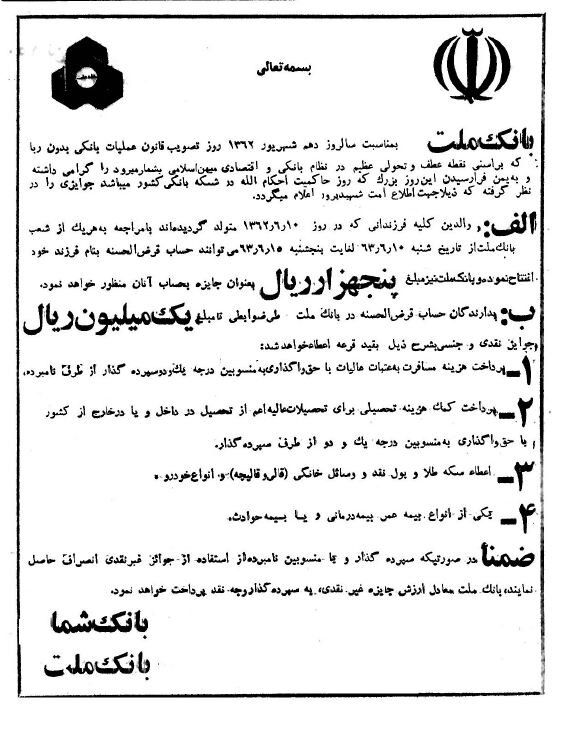 بسمه تعالی
بانک ملت بمناسبت سالروز دهم شهریور ۱۳۶۲ روز تصویب قانون عملیات بانکی بدون ربا
که براستی نقطه عطف و تحولی عظیم در نظام بانکی و اقتصادی میهن اسلامی بشمار میرود را گرامی داشته
و به یمن فرارسیدن این روز بزرگ که روز حاکمیت احکام الله در شبکه بانکی کشور میباشد جوایزی را در
نظر گرفته که ذیلا جهت اطلاع امت شهیدپرور اعلام میگردد.
الف: والدین کلیه فرزندانی که در روز ۱۳۶۲٫۶٫۱۰ متولد گردیده‌اند بامراجعه به هریک از شعب
بانک ملت از تاریخ شنبه ۶۳٫۶٫۱۰ لغایت پنجشنبه ۶۳٫۶٫۱۵ می توانند حساب قرض الحسنه بنام فرزند خود
افتتاح نموده و بانک ملت نیز مبلغ پنجهزار ریال بعنوان جایزه بحساب آنان منظور خواهد نمود.
ب: بدارندگان حساب قرض الحسنه در بانک ملت طی ضوابطی تا مبلغ یک میلیون ریال
جوایز نقدی و جنسی بشرح ذیل بقید قرعه اعطاء خواهد شد:
۱ـ پرداخت هزینه مسافرت به عتبات عالیات با حق واگذاری به منسوبین درجه یک و دو سپرده گذار از طرف نامبرده.
۲ـ پرداخت کمک هزینه تحصیلی برای تحصیلات عالیه اعم از تحصیل در داخل و یا در خارج از کشور
با حق واگذاری به منسوبین درجه یک و دو از طرف سپرده گذار.
۳ـ اعطاء سکه طلا و پول نقد و وسائل خانگی (قالی و قالیچه) و انواع خودرو.
۴ـ یکی از انواع بیمه عمر بیمه درمانی و یا بیمه حوادث.
ضمناً در صورتیکه سپرده گذار و یا منسوبین نامبرده از استفاده از جوائز غیرنقدی انصراف حاصل
نمایند، بانک ملت معادل ارزش جایزه غیر نقدی، به سپرده گذار وجه نقد پرداخت خواهد نمود.
بانک شما
بانک ملت